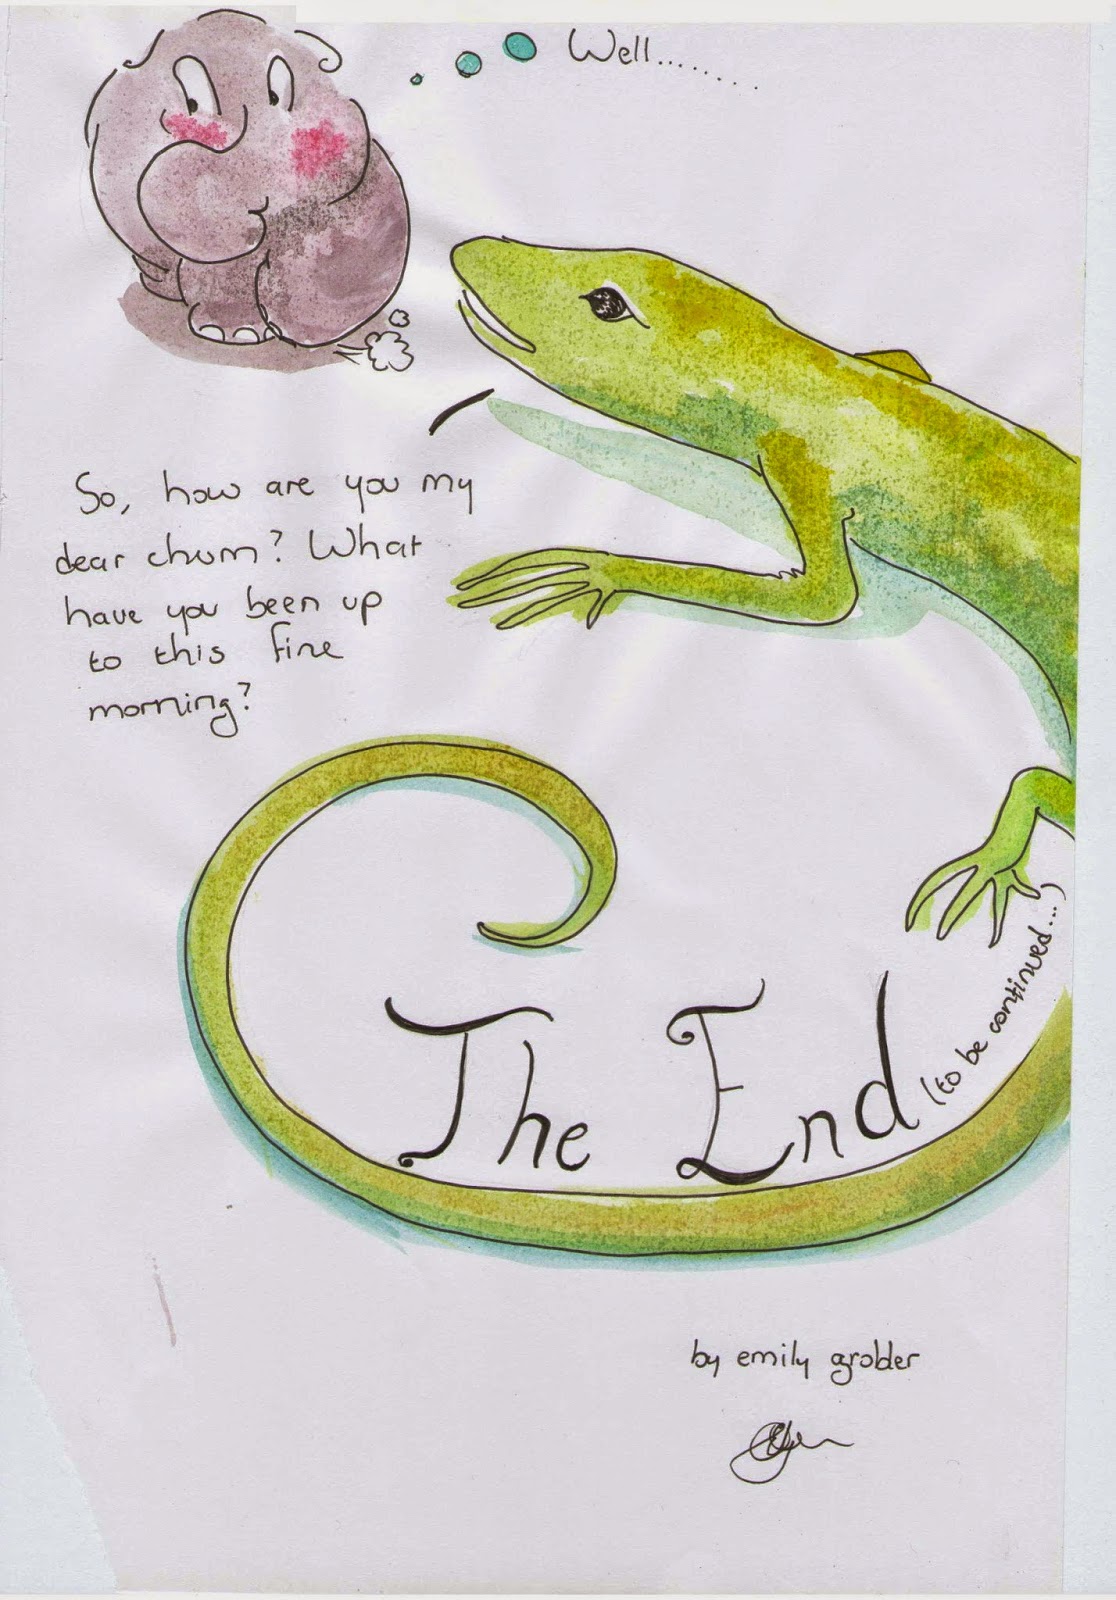 Well........
So, how are you my
dear chum? What
have you been up
to this fine
morning?
The End
(to be continued...)
by emily grolder